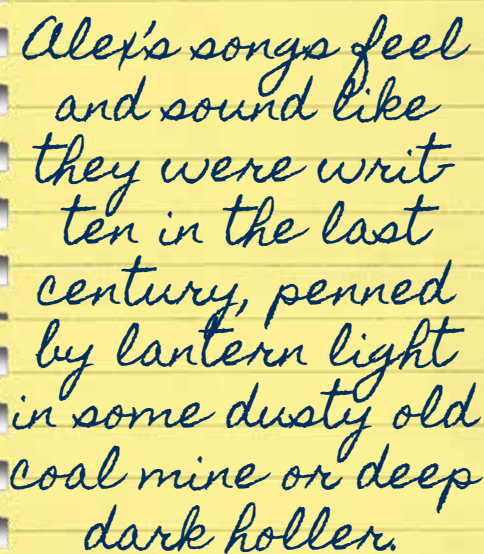 Alex's songs feel
and sound like
they were writ-
ten in the last
century, penned
by lantern light
in some dusty old
coal mine or deep
dark holler.